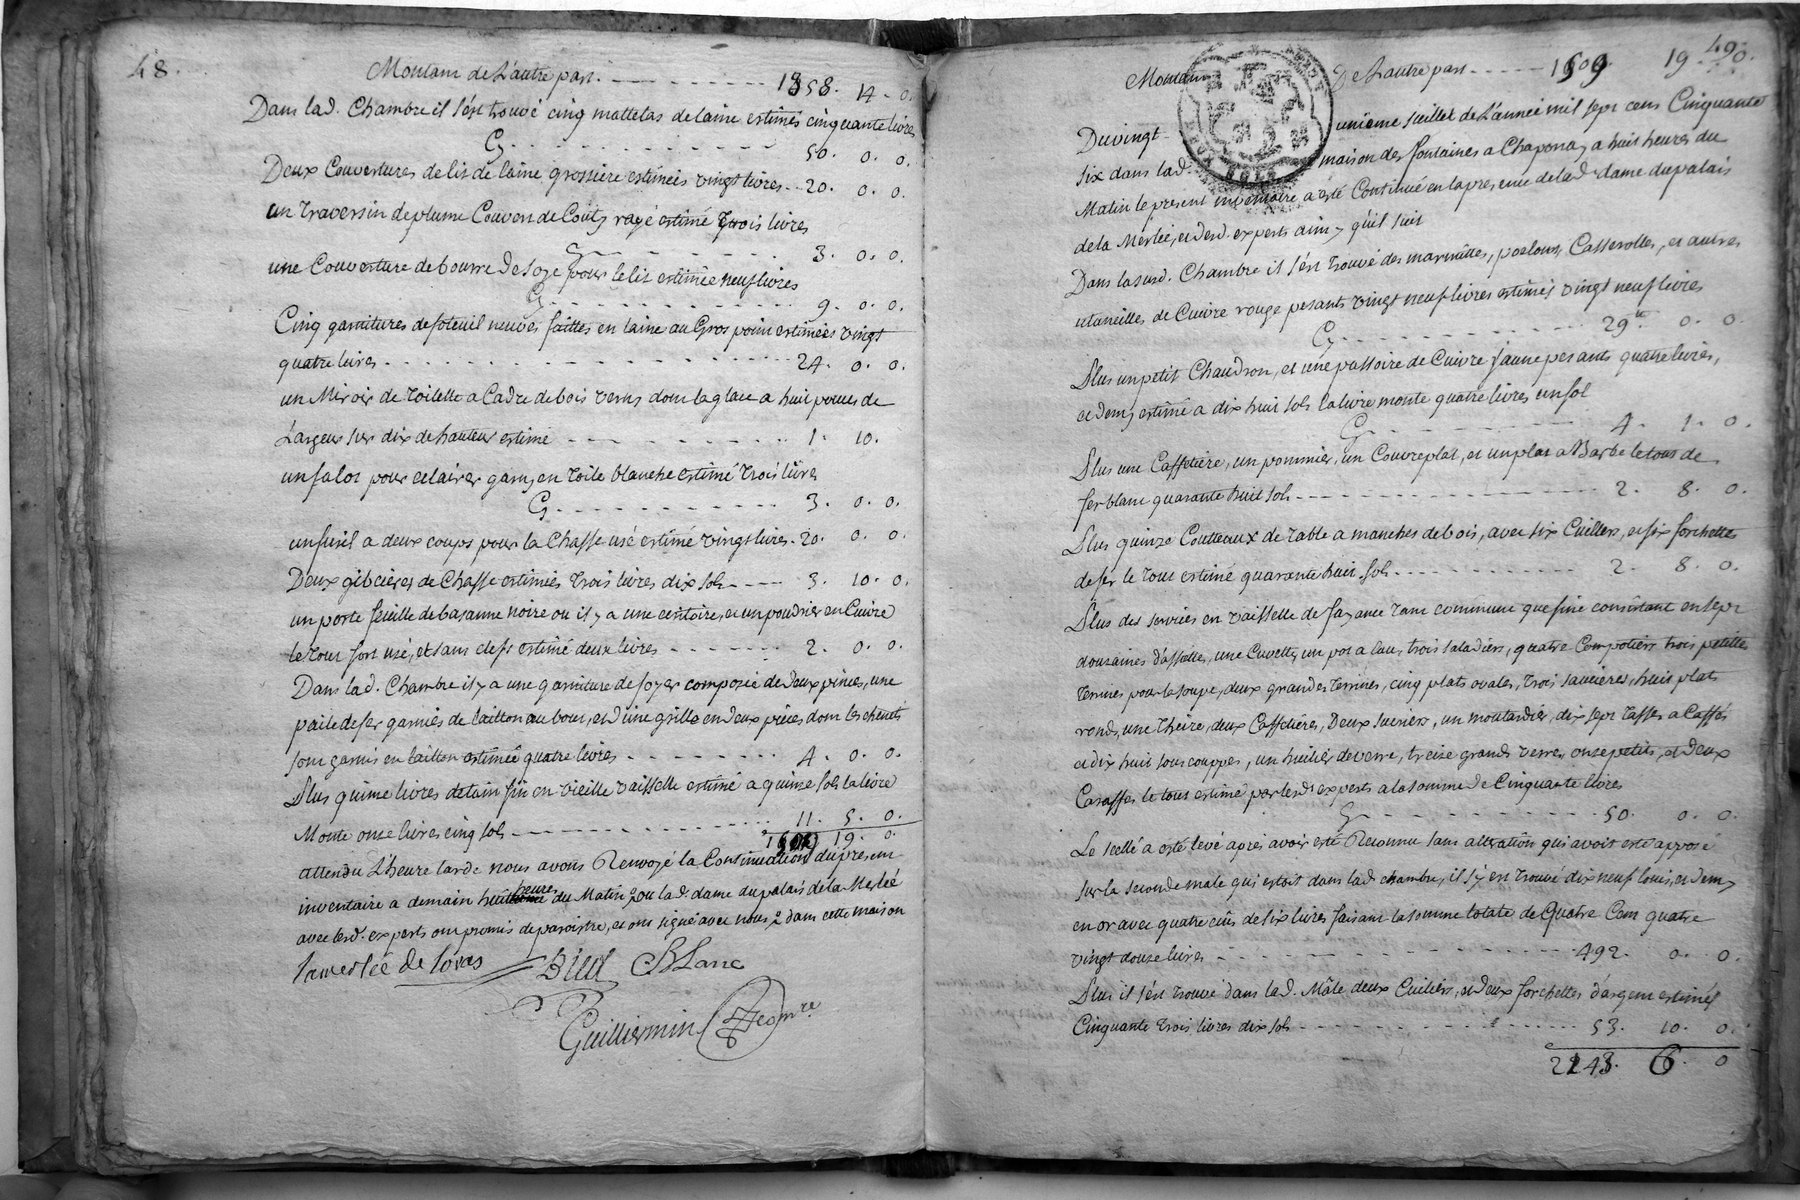 48.
Montant de L'autre part. 1358. 14. 0.
Dans lad. Chambre il s'est trouvé cinq mattelas de laine estimés cinquante livres
Cy 50. 0. 0.
Deux Couvertures de lit de laine grossiere estimées vingt livres 20. 0. 0.
un Traversin de plume Couvert de Couty rayé estimé trois livres
Cy 3. 0. 0.
une Couverture de bourre de soye pour le lit estimée neuf livres
Cy 9. 0. 0.
Cinq garnitures de foteuil neuves faittes en laine au Gros point estimées vingt
quatre livres 24. 0. 0.
un Miroir de Toilette a Cadre de bois verny dont la glace a huit pouces de
Largeur sur dix de hauteur estimé 1. 10.
un falot pour eclairer garny en Toile blanche estimé trois livres
Cy 3. 0. 0.
un fusil a deux coups pour la Chasse usé estimé vingt livres 20. 0. 0.
Deux gibcieres de Chasse estimées trois livres dix sols 3. 10. 0.
un porte feuille de basanne noire ou il y a une ecritoire, et un poudrier en Cuivre
le tout fort usé, et sans clefs estimé deux livres 2. 0. 0.
Dans lad. Chambre il y a une garniture de foyer composée de deux pinces, une
paile de fer garnies de laitton au bout, et d'une grille en deux pièces dont les chenets
sont garnis en laitton estimée quatre livres 4. 0. 0.
Plus quinze livres detain fin en vieille vaisselle estimé a quinze sols la livre
Monte onze livres cinq sols 11. 5. 0.
19. 0.
attendu L'heure tarde nous avons Renvoyé la Continuation du present
inventaire a demain huit heures du Matin ou lad. dame du palais de la Merlée
avec lesd. experts ont promis de paroistre, et ont signé avec nous dans cette maison
lamerlée de Loras Biell BLanc
Guilliermin Comre
49.
Montant De L'autre part 1509. 19. 0.
Du vingt unieme Juillet de L'année mil sept cens Cinquante
six dans lad. maison des fontaines a Chaponay a huit heures du
Matin le present inventaire a esté Continué en la presence de lad. dame du palais
de la Merlée, et desd. experts ainsy qu'il suit
Dans la susd. Chambre il s'est trouvé des marmittes, poelons, Casserolles, et autres
utancilles de Cuivre rouge pesants vingt neuf livres estimés vingt neuf livres
Cy 29. 0. 0.
Plus un petit Chaudron, et une passoire de Cuivre jaune pesants quatre livres,
et demy estimé a dix huit sols la livre monte quatre livres un sol
Cy 4. 1. 0.
Plus une Caffetière, un pommier, un Couvreplat, et un plat a Barbe le tout de
fer blanc quarante huit sols 2. 8. 0.
Plus quinze Coutteaux de table a manches de bois, avec six Cuillers, et six forchettes
de fer le tout estimé quarante huit sols 2. 8. 0.
Plus des services en vaisselle de fayance tant commune que fine consistant en sept
douzaines d'assiettes, une Cuvette, un pot a l'au, trois saladiers, quatre Compotiers trois petittes
terrines pour la soupe, deux grandes terrines, cinq plats ovales, trois saucières, huit plats
ronds, une theire, deux Caffetières, deux sucriers, un moutardier, dix sept tasses a Caffés
et dix huit souscouppes, un huilier de verre, treize grands verres, onze petits, et deux
Caraffes le tout estimé par lesd. experts a la somme de Cinquante livres
Cy 50. 0. 0.
Le scellé a esté levé après avoir esté Reconnu sans alteration qui avoit esté apposé
sur la seconde male qui estoit dans lad. chambre, il s'y en trouvé dix neuf louis, et demy
en or avec quatre ecus de six livres faisant la somme totale de Quatre Cent quatre
vingt douze livres 492. 0. 0.
Plus il s'est trouvé dans lad. Mâle deux Cuiliers, et deux forchettes d'argent estimés
Cinquante trois livres dix sols 53. 10. 0.
2143. 6. 0